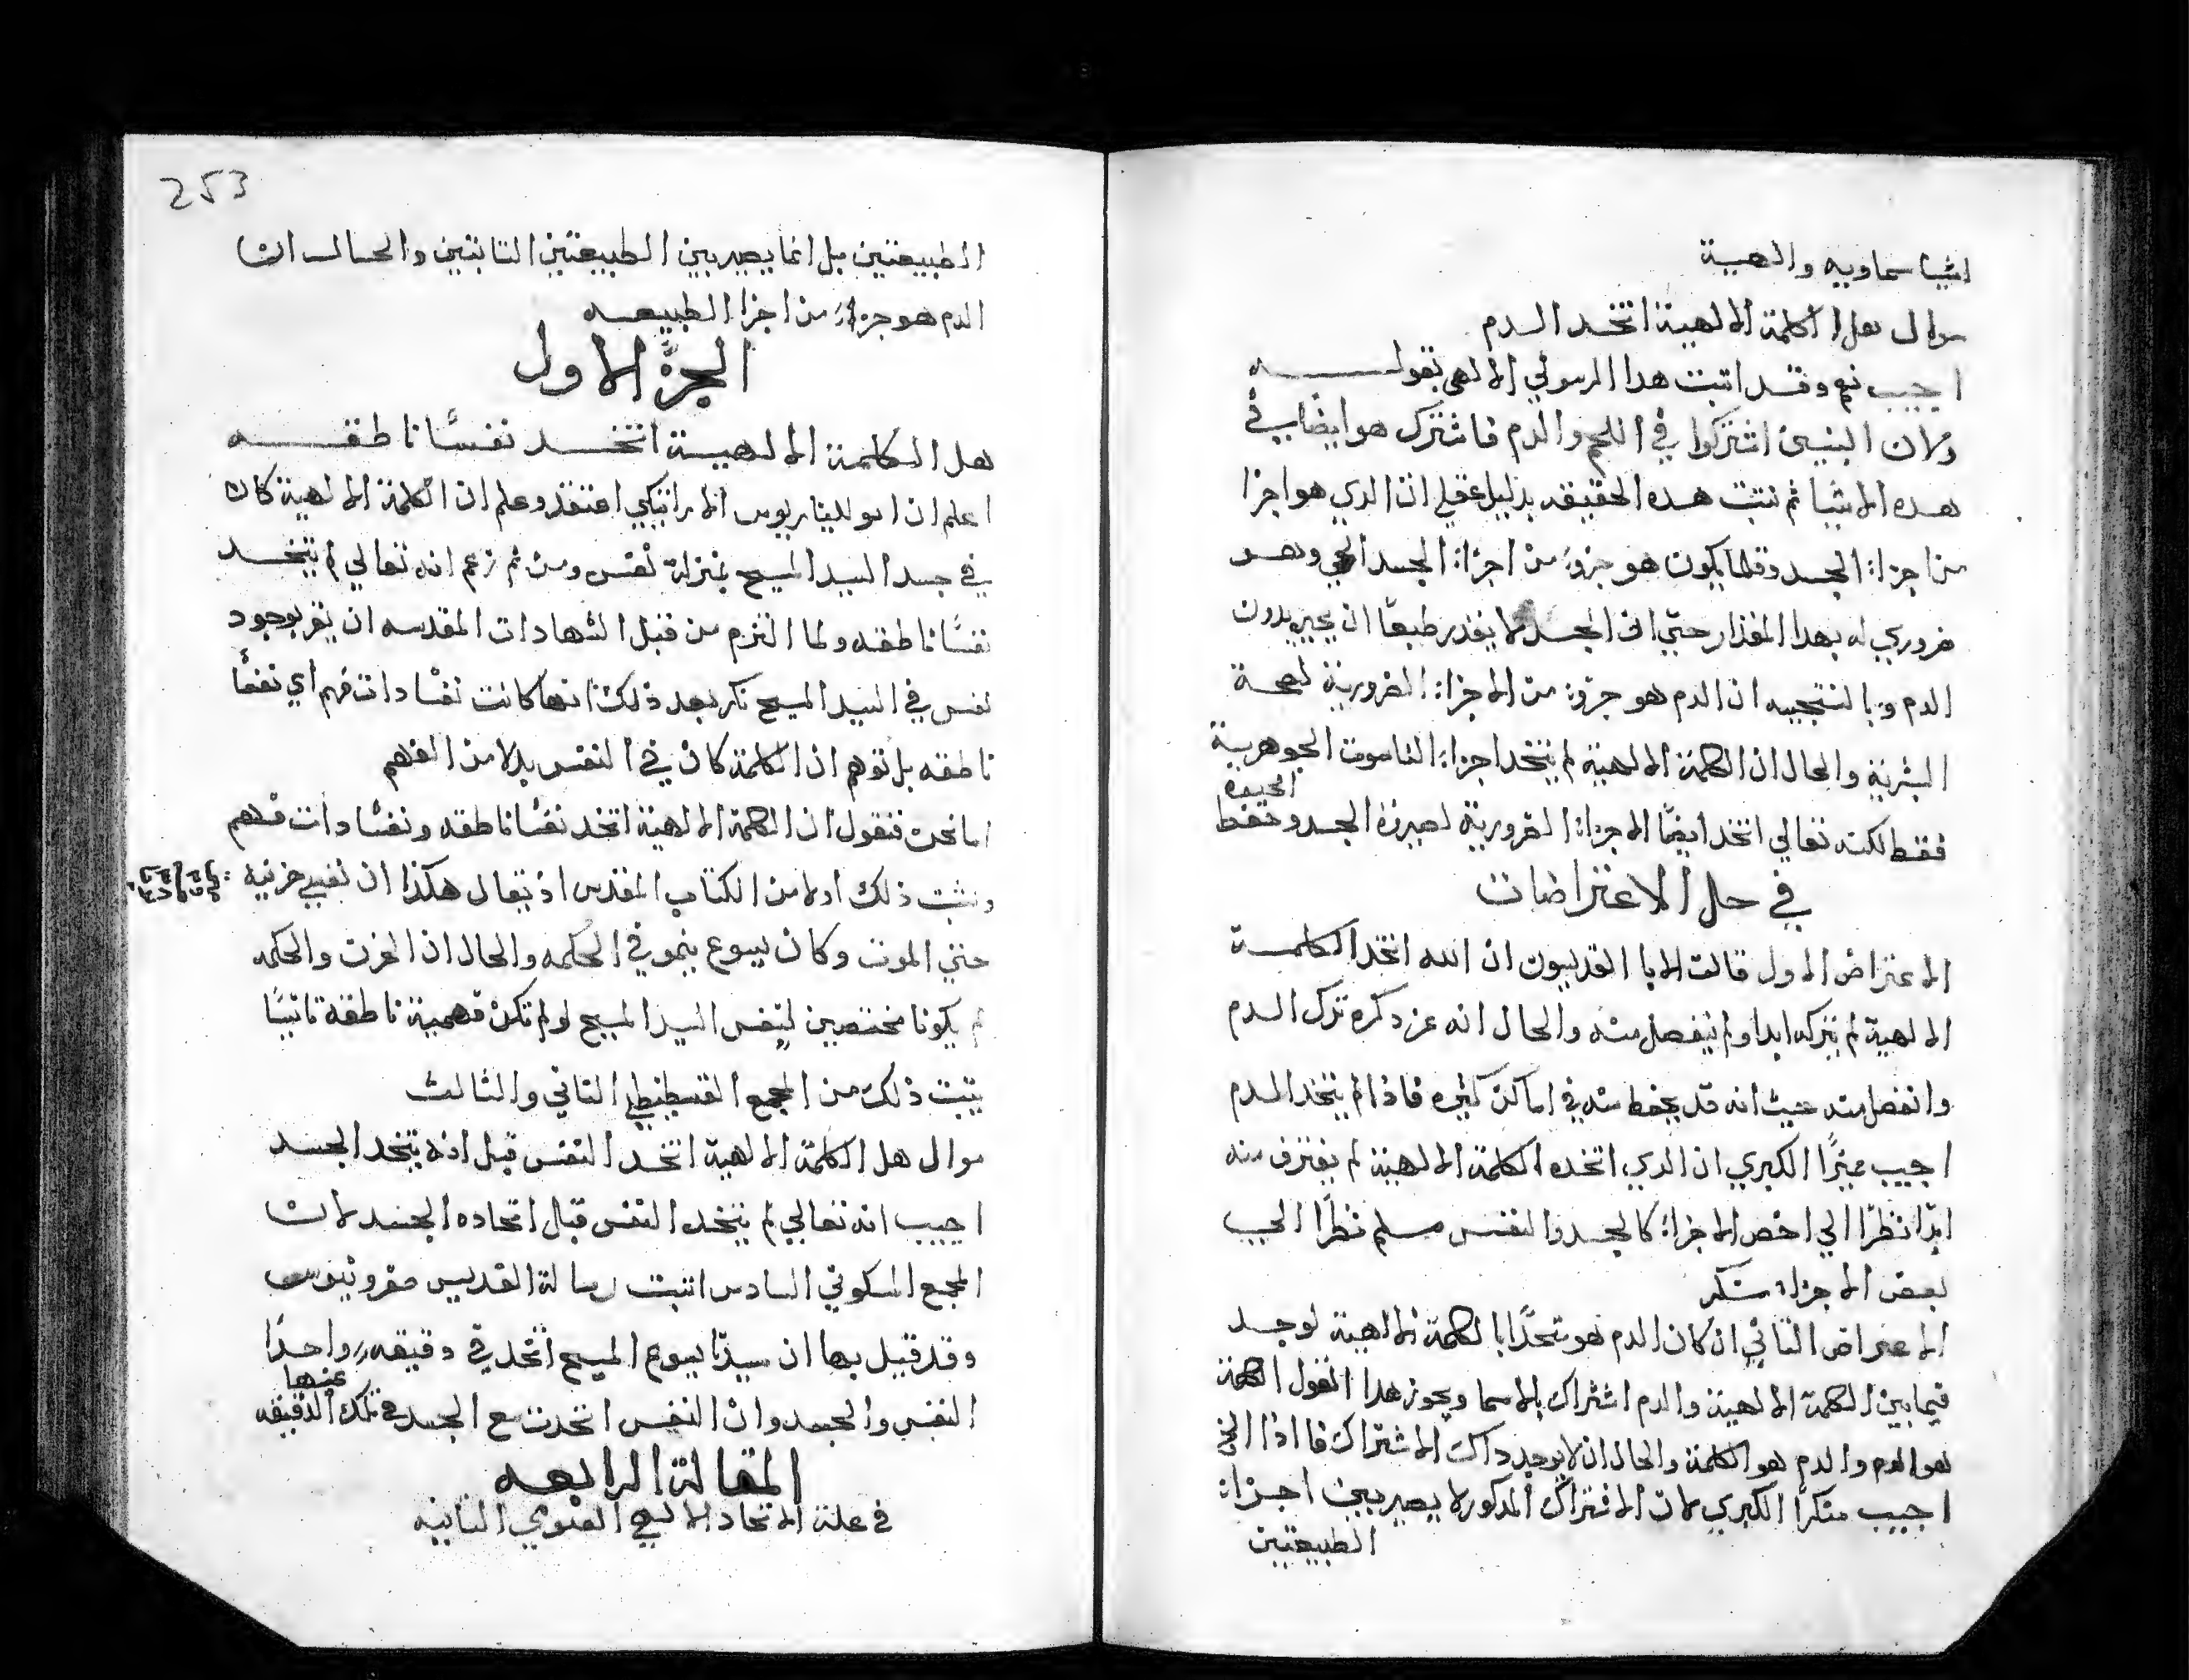 اشيا سماويه والهية
سوال هل الكلمة الالهية اتخد الدم
اجيب نعم وقد اتبت هدا الرسولي الالهي بقوله
ولان البنين اشتركوا في اللحم والدم فاشترك هو ايضًا في
هده الاشيا ثم نتبت هده الحقيقه بدليل عقلي ان الدي هو اجزا
من اجزاء الجسد وقلما يكون هو جزوء من اجزاء الجسد الحي وهو
ضروري له بهدا المقدار حتي ان الجسد لا يقدر طبعًا ان يحيي بدون
الدم وبالنتجيه ان الدم هو جزوء من الاجزاء الضرورية لصحة
البشرية والحال ان الكلمة الالهية لم يتخد اجزاء الناسوت الجوهرية
فقط لكنه تعالي اتخد ايضًا الاجزاء الضرورية لصيرورة الجسد وحفظ
الحيوة
في حل الاعتراضات
الاعتراض الاول قالت الابا القديسون ان الله اتخد الكلمة
الالهية لم يتركه ابدا ولم ينفصل منه والحال انه عز دكره ترك الدم
وانفصل منه حيث انه قد يحفظ منه في اماكن كثيره فاذا لم يتخد الدم
اجيب مميزًا الكبري ان الدي اتخده الكلمة الالهية لم يفترف منه
ابدًا نظرًا الي اخص الاجزاء كالجسد والنفس مسلم نظرًا الي
بعض الاجزاء منكر
الاعتراض التاني ان كان الدم هو متحدًا بالكلمة الالهية لوجد
فيما بين الكلمة الالهية والدم اشتراك بالاسما ويجوز هدا القول الكلمة
هو الدم والدم هو الكلمة والحال ان لا يوجد داك الاشتراك فااذا الخ
اجيب منكرًا الكبري لان الافتراك المدكور لا يصير بين اجزاء
الطبيعتين
253
الطبيعتين بل انما يصير بين الطبيعتين التابتين والحال ان
الدم هو جزاء من اجزا الطبيعه
الجزء الاول
هل الكلمة الالهية اتخد نفسًا ناطقه
اعلم ان ابوللينار يوس الاراتيكي اعتقد وعلم ان الكلمة الالهية كان
في جسد السيد المسيح بمنزلة نفس ومن ثم زعم انه تعالي لم يتخد
نفسًا ناطقه ولما التزم من قبل الشهادات المقدسه ان يقر بوجود
نفس في السيد المسيح نكر بعد ذلك انها كانت نفسًا دات فهم اي نفسًا
ناطقه بل توهم ان الكلمة كان في النفس بدلا من الفهم
اما نحن فنقول ان الكلمة الالهية اتخد نفسًا ناطقه ونفسًا دات فهم
ونتبت ذلك اولا من الكتاب المقدس اذ يقال هكذا ان نفسي حزينة
حتي الموت وكان يسوع ينمو في الحكمه والحال ان الحزن والحكمه
لم يكونا مختصين لنفس السيد المسيح لو لم تكن فهمية ناطقة تانيًا
يتبت ذلك من المجمع القسطنطي التاني والثالث
سوال هل الكلمة الالهية اتخد النفس قبل انه يتخد الجسد
اجيب انه تعالي لم يتخد النفس قبل اتحاده الجسد لان
المجمع المسكوني السادس اتبت رسالة القديس صفرونيوس
وقد قيل بها ان سيدنا يسوع المسيح اتخد في دقيقه واحدًا
النفس والجسد وان النفس اتحدت مع الجسد في تلك الدقيقه
عينها
المقالة الرابعه
في علة الاتحاد الالهي القنوي التانيه